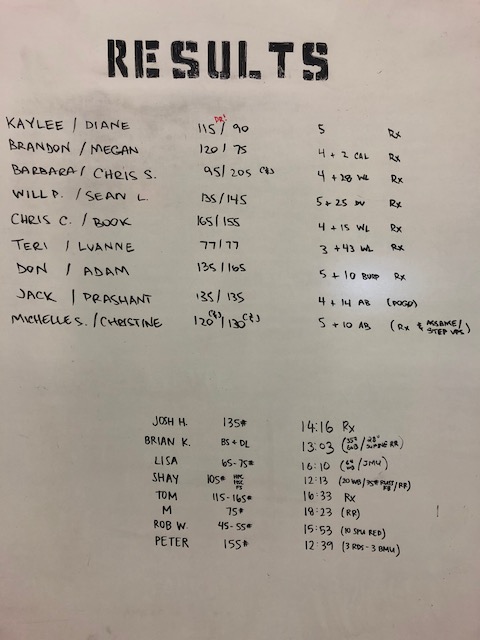 RESULTS
KAYLEE / DIANE 115 PR! / 90 5 Rx
BRANDON / MEGAN 120 / 75 4 + 2 CAL Rx
BARBARA / CHRIS S. 95 / 205 C&J 4 + 28 WL Rx
WILL P. / SEAN L. 135 / 145 5 + 25 DU Rx
CHRIS C. / BOOK 165 / 155 4 + 15 WL Rx
TERI / LUANNE 77 / 77 3 + 43 WL Rx
DON / ADAM 135 / 165 5 + 10 BURP Rx
JACK / PRASHANT 135 / 135 4 + 14 AB (POGO)
MICHELLE S. / CHRISTINE 120 C&J / 130 C&J 5 + 10 AB (Rx & / STEP UPS)
JOSH H. 135# 14:16 Rx
BRIAN K. BS + DL 13:03 (35# / 28" RR)
LISA 65-75# 16:10 (/JMU)
SHAY 105# 12:13 (20 WB/75# /RR)
TOM 115-165# 16:33 Rx
M 75# 18:23 (RR)
ROB W. 45-55# 15:53 (10 SPU RED)
PETER 155# 12:39 (3 RDS - 3 BMU)